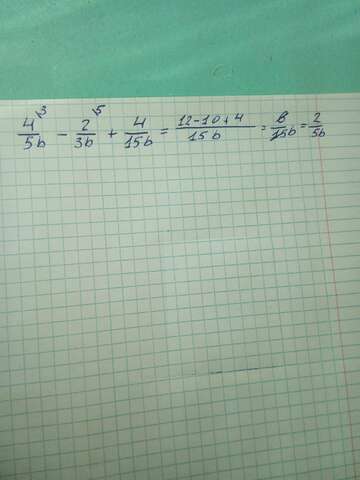 4³/5b - 2⁵/3b + 4/15b = 12-10+4/15b = 6/15b = 2/5b